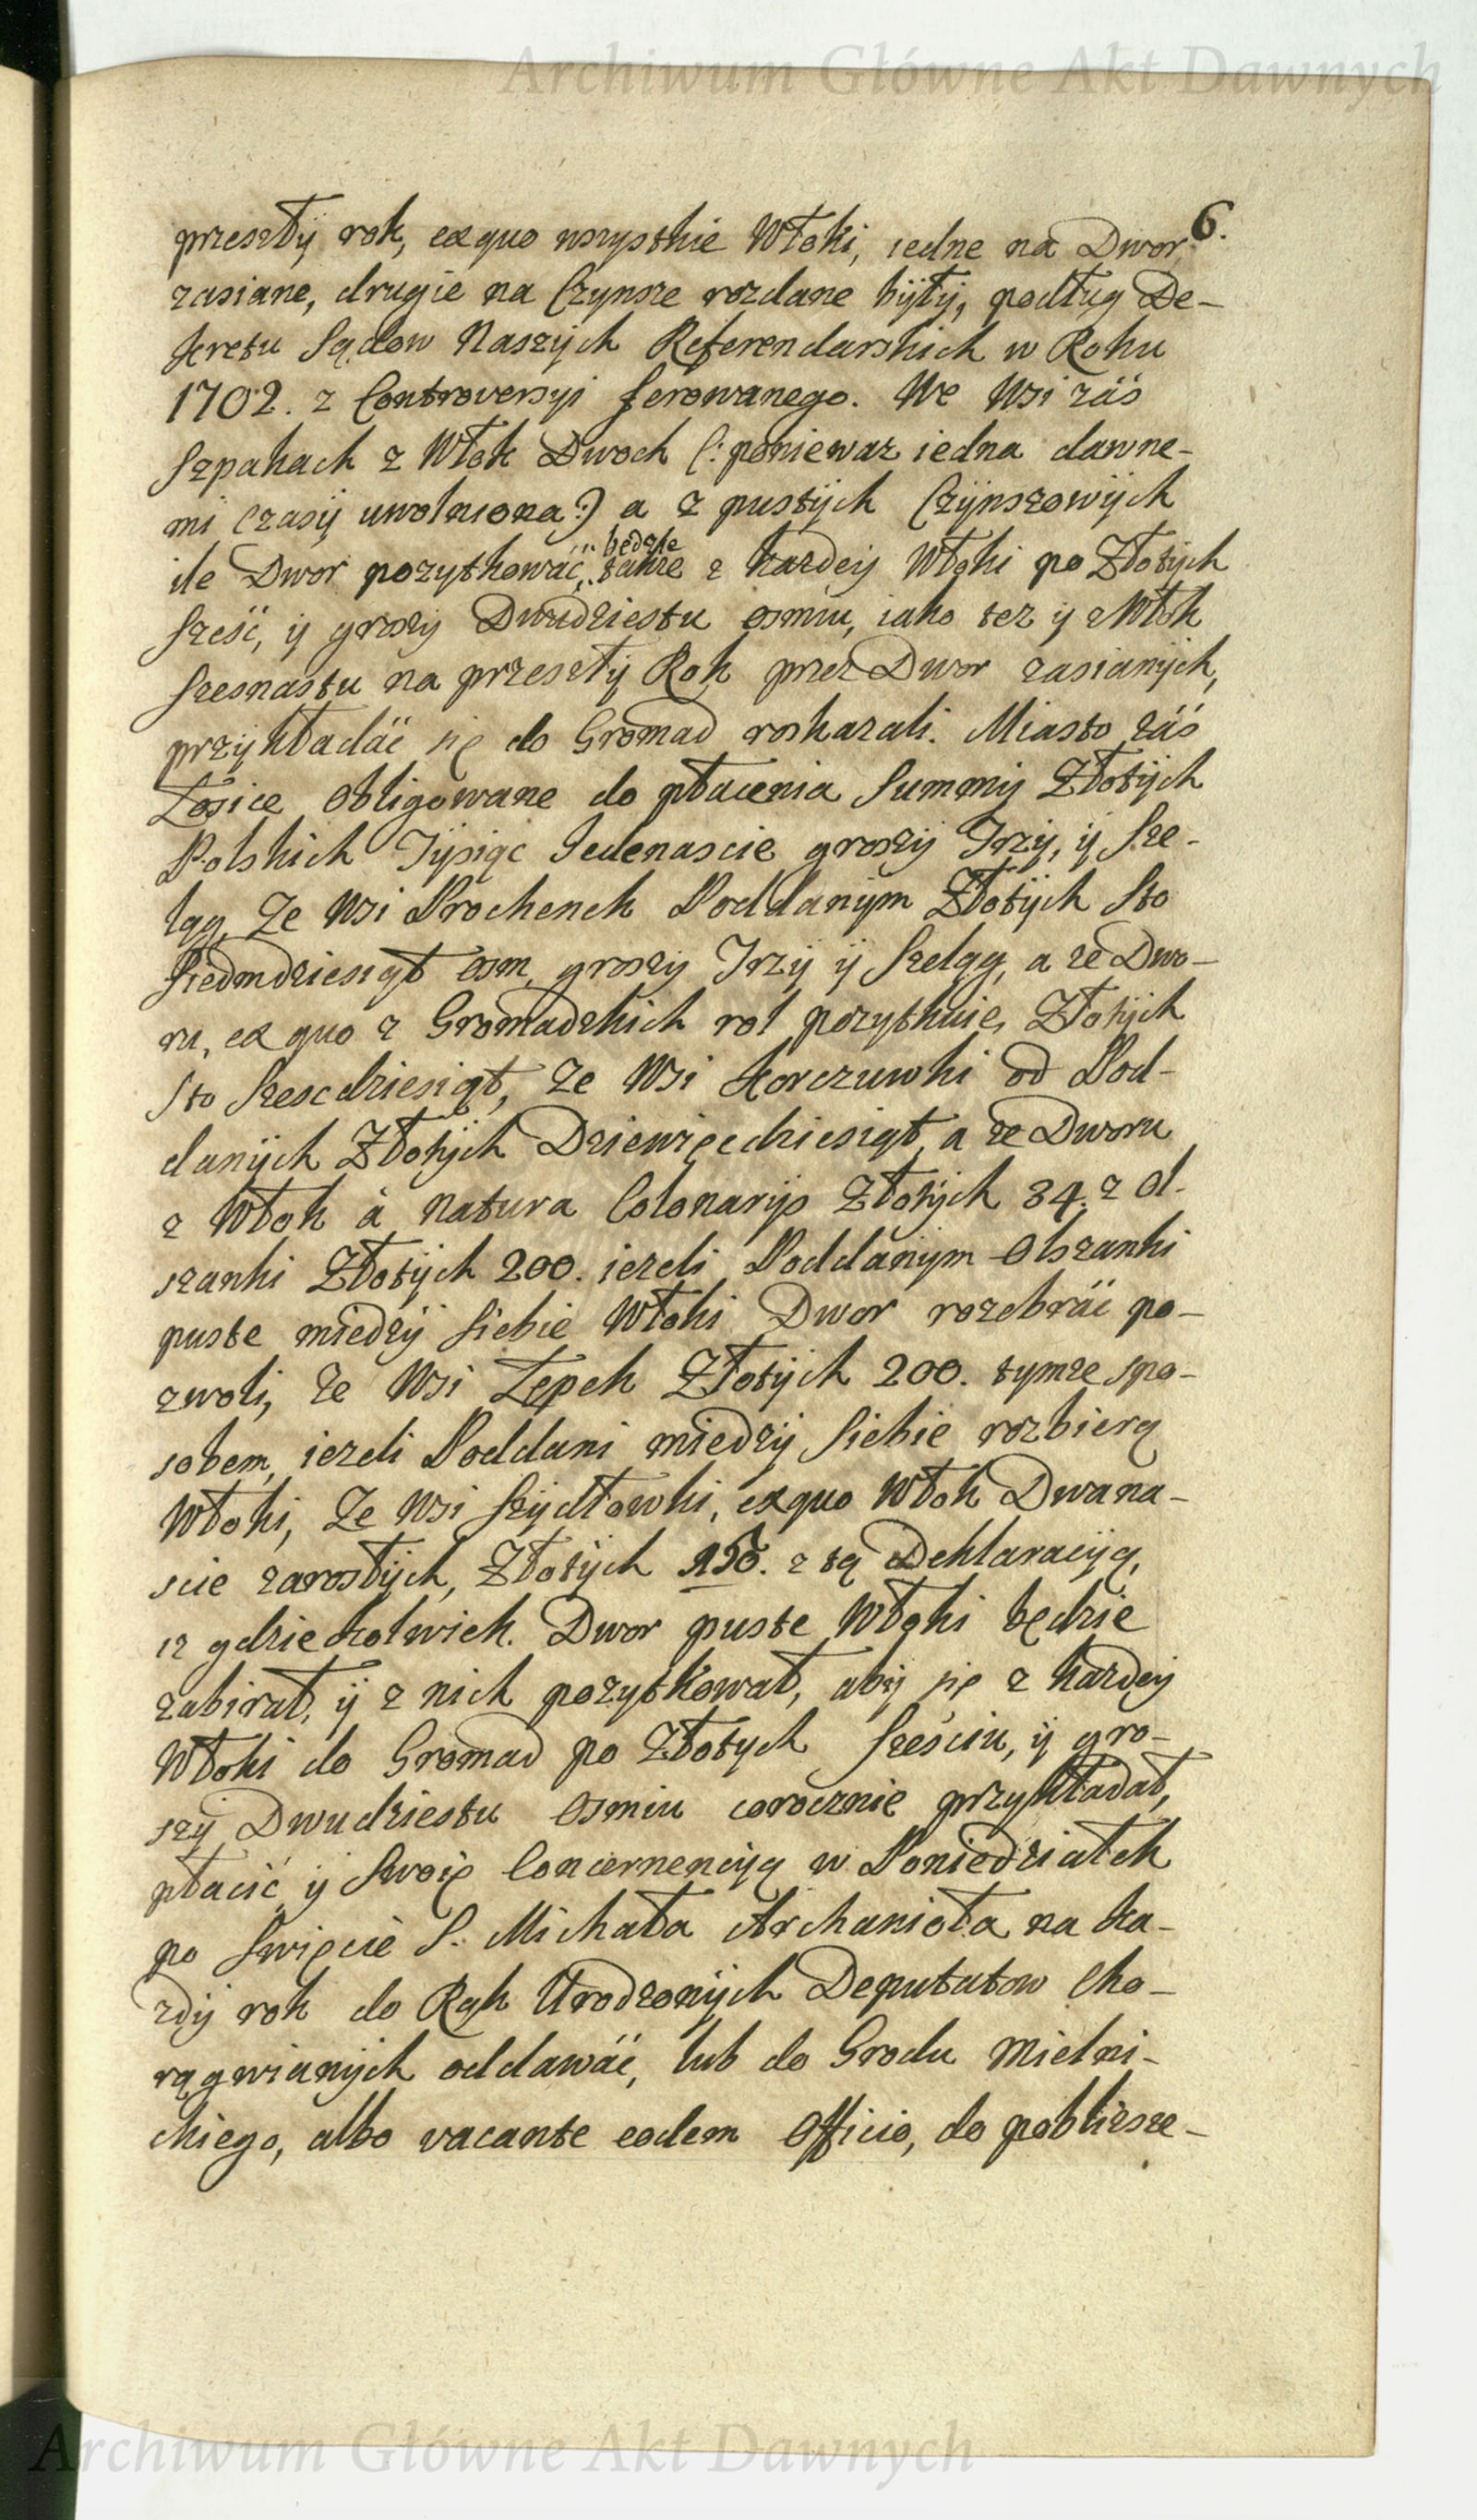 Archiwum Główne Akt Dawnych
6.
przeszłÿ rok, ex quo wszystkie Włoki, iedne na Dwor
zasiane, drugie na Czynsze rozdane bÿłÿ, podług De-
kretu Sądow Naszÿch Referendarskich w Roku
1702. z Controversyi ferowanego. We Wsi záś
Szpakach z Włok Dwoch (: poniewaz iedna dawne-
mi Czasÿ uwolniona :) a z pustÿch Czÿnszowÿch
będzie
ile Dwor pozytkowáć, takze z kazdeÿ Włoki po Złotÿch
Sześć, ÿ groszÿ Dwudziestu osmiu, iako tez ÿ z Włok
Szesnastu na przeszłÿ Rok przez Dwor zasianÿch,
przÿkładáć się do Gromad roskazali. Miasto záś
Łosice obligowane do płacenia Summÿ Złotÿch
Polskich Tÿsiąc Jedenascie groszÿ Trzÿ, ÿ Sze-
ląg, Ze Wsi Prochenek Poddanÿm Złotÿch Sto
Siedmdziesiąt osm, groszÿ Trzÿ ÿ Szeląg, a ze Dwo-
ru, ex quo z Gromadzkich rol pozytkuie, Złotÿch
Sto Szescdziesiąt, Ze Wsi Korczuwki od Pod-
danÿch Złotÿch Dziewięcdziesiąt, a ze Dworu
z Włok à natura Colonarÿs Złotÿch 34. z Ol-
szanki Złotÿch 200. iezeli Poddanÿm Olszanki
puste miedzÿ Siebie Włoki Dwor rozebráć po-
zwoli, Ze Wsi Łepek Złotÿch 200. tymze spo-
sobem, iezeli Poddani miedzÿ Siebie rozbierą
Włoki, Ze Wsi Szÿdłowki, ex quo Włok Dwana-
scie zarostÿch, Złotÿch 150. z tą Deklaracÿą,
iz gdziekolwiek Dwor puste Włoki będzie
zabirał, ÿ z nich pozytkował, abÿ się z kazdeÿ
Włoki do Gromad po Złotych Sześciu, ÿ gro-
szÿ Dwudziestu Osmiu corocznie przykładał,
płacić ÿ Swoię Concernencÿą w Poniedziałek
po Swięcie S. Michała Archanioła na ka-
zdÿ rok do Rąk Urodzonÿch Deputatow Cho-
rągwianÿch oddawáć, lub do Grodu Mielni-
ckiego, albo vacante eodem Officio, do pobliesze-
Archiwum Główne Akt Dawnych